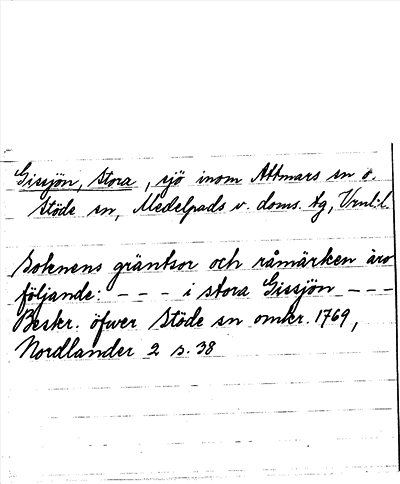 Gissjön, Stora, sjö inom Attmars sn o.
Stöde sn, Medelpads v. doms. tg, Vrnl.l.
Soknens gräntsor och råmärken äro
följande: - - - i stora Gissjön - - -
Beskr. öfwer Stöde sn omkr. 1769,
Nordlander 2 s. 38